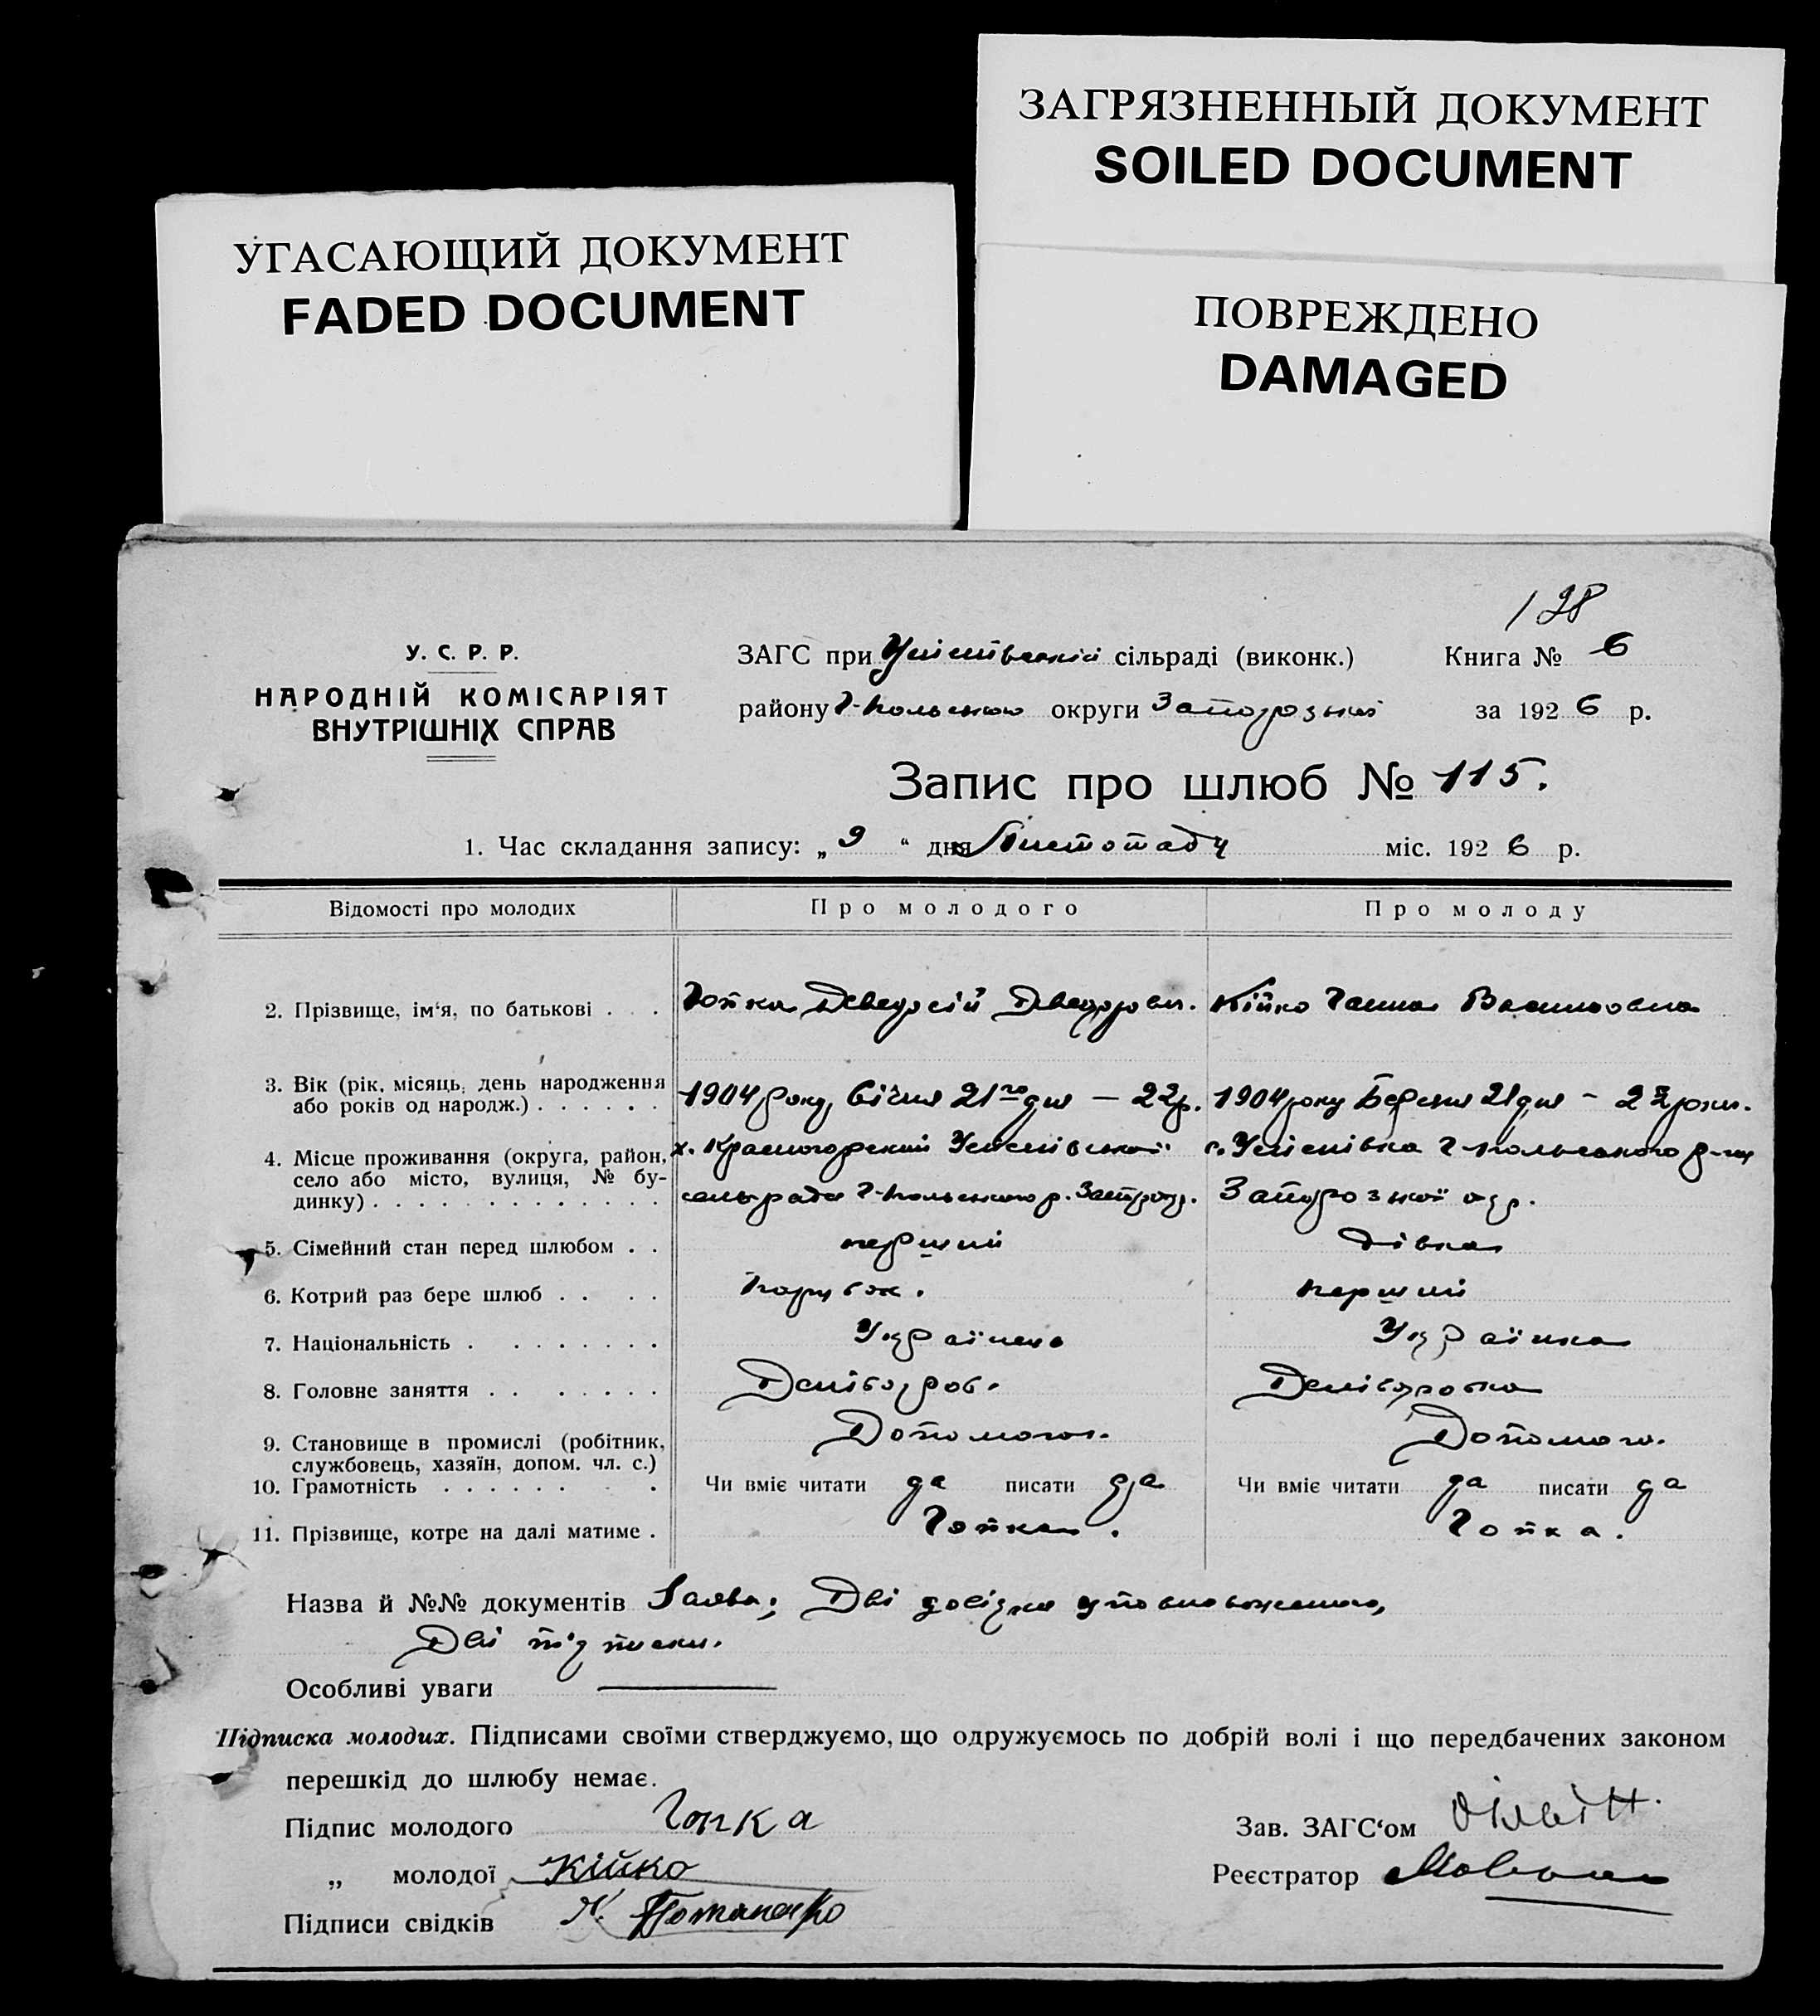 ЗАГРЯЗНЕННЫЙ ДОКУМЕНТ
SOILED DOCUMENT
УГАСАЮЩИЙ ДОКУМЕНТ
FADED DOCUMENT
ПОВРЕЖДЕНО
DAMAGED
128
У. С. Р. Р.
НАРОДНІЙ КОМІСАРІЯТ
ВНУТРІШНІХ СПРАВ
ЗАГС при Успенівській сільраді (виконк.) Книга № 6
району Г-Польського округи Запорозької за 1926 р.
Запис про шлюб № 115.
1. Час складання запису: „ 9 “ дня Листопаду міс. 1926 р.
Відомості про молодих Про молодого Про молоду
2. Прізвище, ім‘я, по батькові . . . Гопка Кійко Ганна
3. Вік (рік, місяць, день народження
або років од народж.) . . . . . . 1904 року, Січня 21го дня — 22р. 1904 року Березня 21 дня - 22 роки.
4. Місце проживання (округа, район, х. Красногорский Успенівської с. Успенівка Г-Польського р-ну
село або місто, вулиця, № бу- сельради Г-Польського р. Запорозької окр.
динку) . . . . . . . . . . . . .
5. Сімейний стан перед шлюбом . . перший дівка
6. Котрий раз бере шлюб . . . . Парубок. перший
7. Національність . . . . . . . . Українець Українка
8. Головне заняття . . . . . . . Хлібороб. Хліборобка
9. Становище в промислі (робітник, Допомог. Допомог.
службовець, хазяїн, допом. чл. с.)
10. Грамотність . . . . . . . . Чи вміє читати да писати да Чи вміє читати да писати да
11. Прізвище, котре на далі матиме . Гопка. Гопка.
Назва й №№ документів Заява; Дві довідки уповноваженого,
Дві підписки.
Особливі уваги
Підписка молодих. Підписами своїми стверджуємо, що одружуємось по добрій волі і що передбачених законом
перешкід до шлюбу немає.
Підпис молодого Гопка Зав. ЗАГС‘ом
„ молодої Кійко Реєстратор
Підписи свідків Н. Потапенко